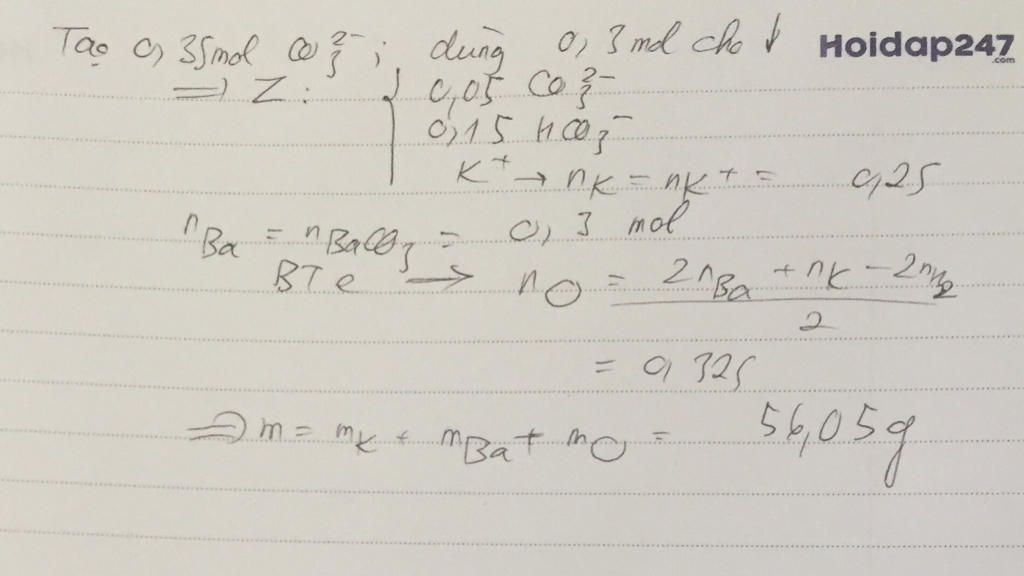 Tạo 0,35mol CO₃²⁻; dùng 0,3 mol cho ↓
Hoidap247
.com
=> Z: { 0,05 CO₃²⁻
0,15 HCO₃⁻
K⁺ → nK = nK⁺ = 0,25
nBa = nBaCO₃ = 0,3 mol
BTe → nO = (2nBa + nK - 2nH₂) / 2
= 0,325
=> m = mK + mBa + mO = 56,05g